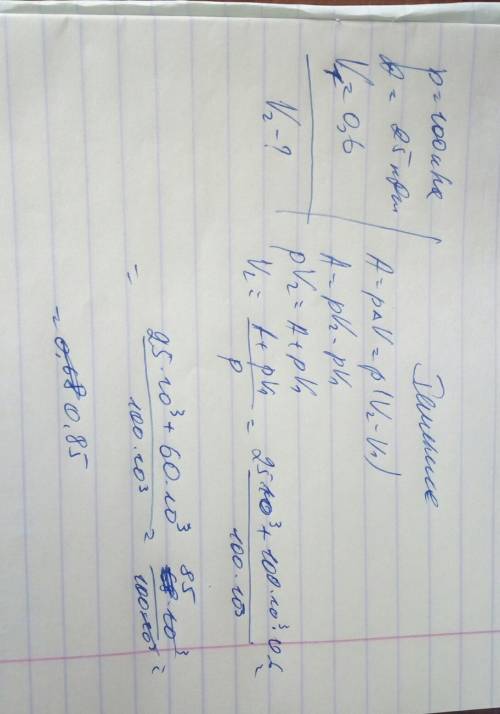 p = 100 кПа
A = 25 кДж
V₁ = 0,6
V₂ - ?
Решение
A = pΔV = p(V₂ - V₁)
A = pV₂ - pV₁
pV₂ = A + pV₁
V₂ = (A + pV₁)/p = (25·10³ + 100·10³·0,6)/(100·10³) =
= (25·10³ + 60·10³)/(100·10³) = (85·10³)/(100·10³) =
= 0,85